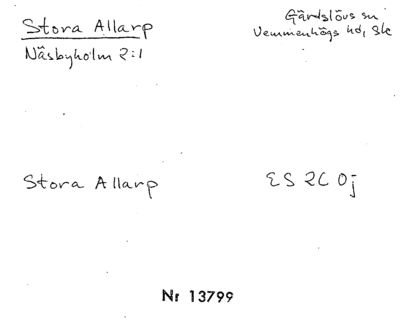 Stora Allarp
Gärdslövs sn
Vemmenhögs hd, Sk
Näsbyholm 2:1
Stora Allarp
ES 2C 0j
Nr 13799